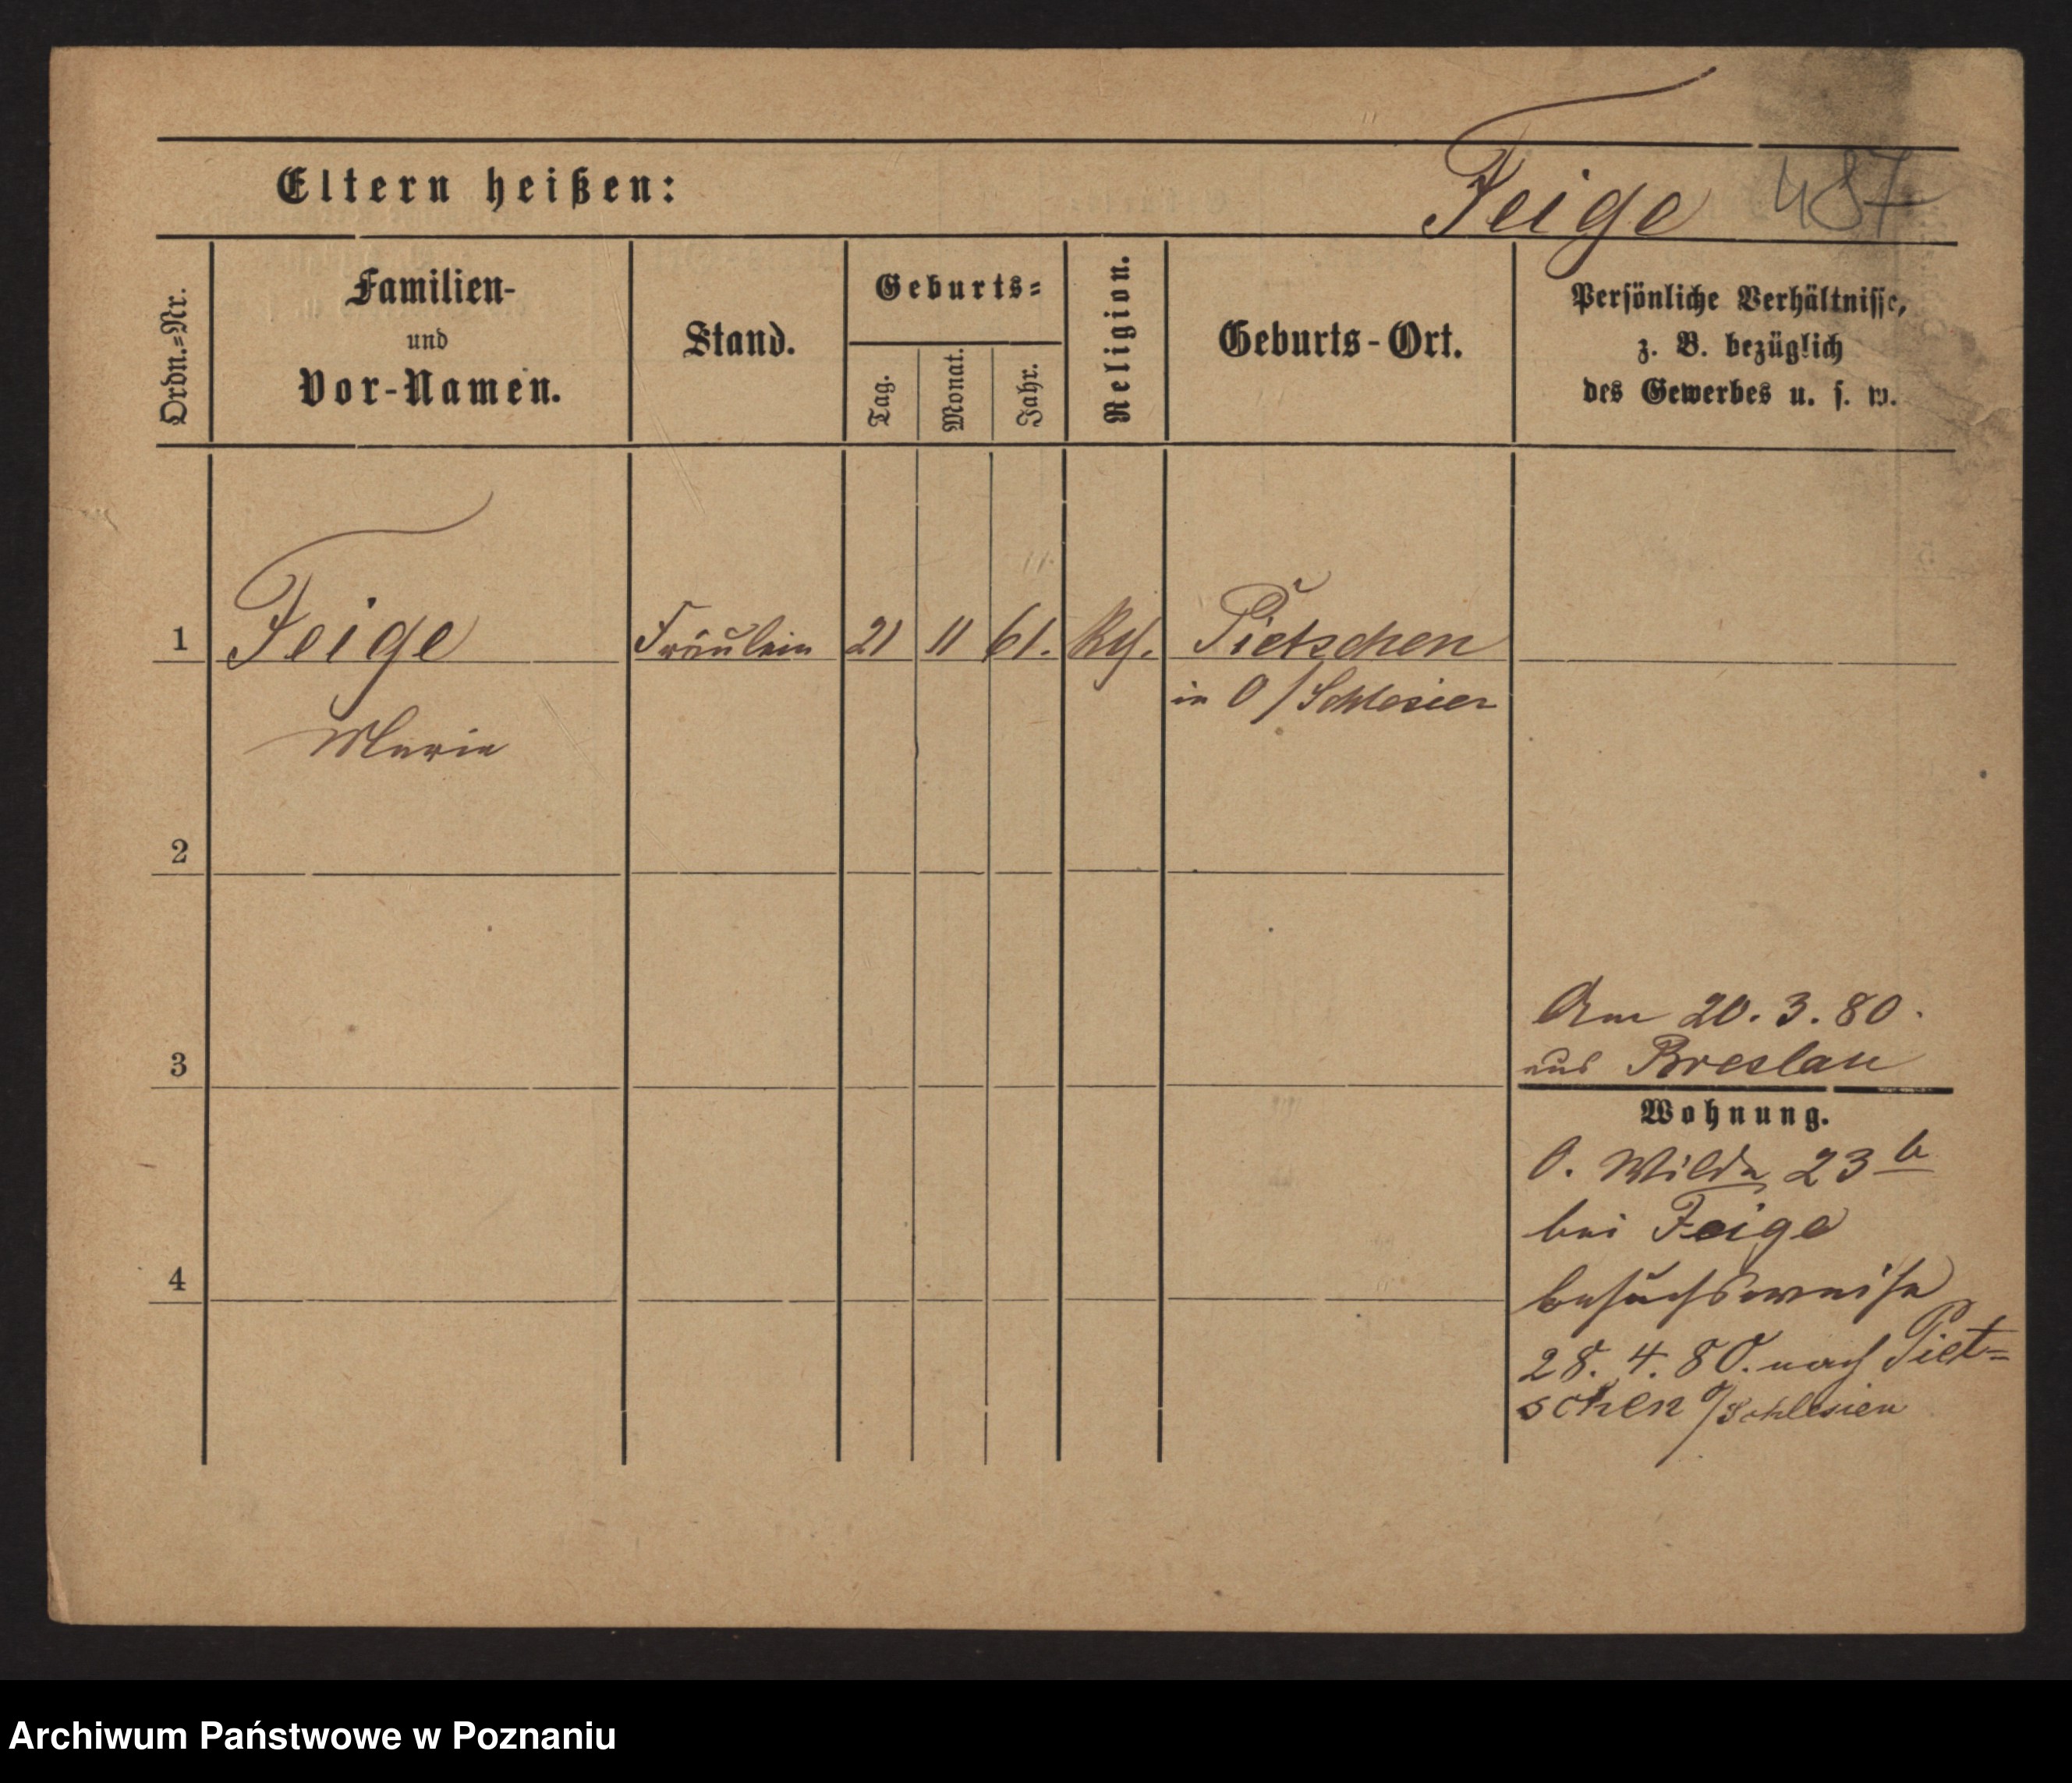 Eltern heißen:
Feige 487
Ordn.=Nr.
Familien-
und
Vor-Namen.
Stand.
Geburts=
Tag.
Monat.
Jahr.
Religion.
Geburts-Ort.
Persönliche Verhältnisse,
z. B. bezüglich
des Gewerbes u. s. w.
1 Feige Fräulein 21 11 61. Pietschen
in O/Schlesien
Marie
2
3
4
Am 20. 3. 80.
aus Breslau
Wohnung.
O. Wilda 23 b
bei Feige
besuchsweise
28. 4. 80. nach Piet=
schen O/Schlesien
Archiwum Państwowe w Poznaniu